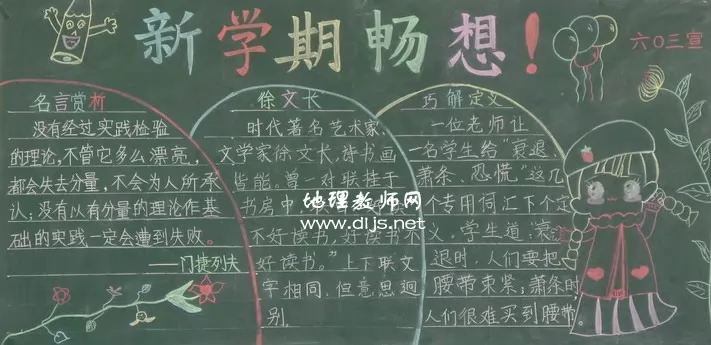 新学期畅想!
六〇三宣
名言赏析
没有经过实践检验
的理论,不管它多么漂亮,
都会失去分量,不会为人所承
认;没有以有分量的理论作基
础的实践一定会遭到失败。
——门捷列夫
徐文长
时代著名艺术家、
文学家徐文长,诗书画
皆能。曾一对联挂于
书房中,
不好读书,好读书不
好读书。"上下联文
字相同,但意思迥
别。
巧解定义
一位老师让
一名学生给"衰退、
萧条、恐慌"这几
个专用词汇下个定
义。学生道:衰
退时,人们要把
腰带束紧;萧条时,
人们很难买到腰带
地理教师网
www.dljs.net